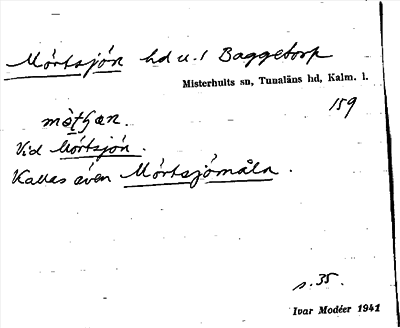 Mörtsjön hd u. l Baggetorp
Misterhults sn, Tunaläns hd, Kalm. l.
159
Vid Mörtsjön.
Kallas även Mörtsjömåla.
s. 35.
Ivar Modéer 1941